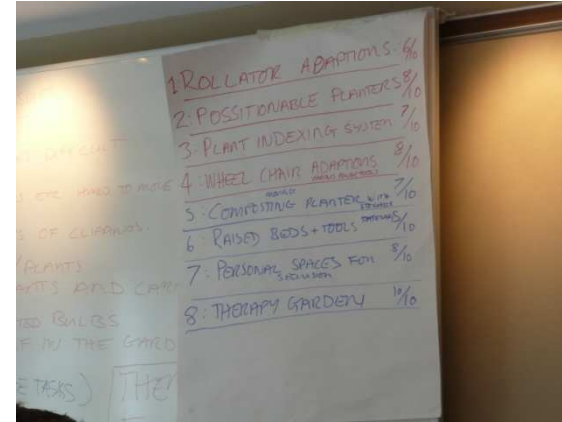 1. ROLLATOR ADAPTIONS. 6/10
2. POSSITIONABLE PLANTERS 8/10
3. PLANT INDEXING SYSTEM 7/10
4. WHEEL CHAIR ADAPTIONS 8/10
5. COMPOSTING PLANTER WITH 7/10
6. RAISED BEDS + TOOLS 5/10
7. PERSONAL SPACES FOR 8/10
8. THERAPY GARDEN 10/10
DIFFICULT
ETC HARD TO MOVE
S OF CLIPPINGS.
/PLANTS
ANTS AND CAR
TED BULBS
F IN THE GARD
E TASKS) THE